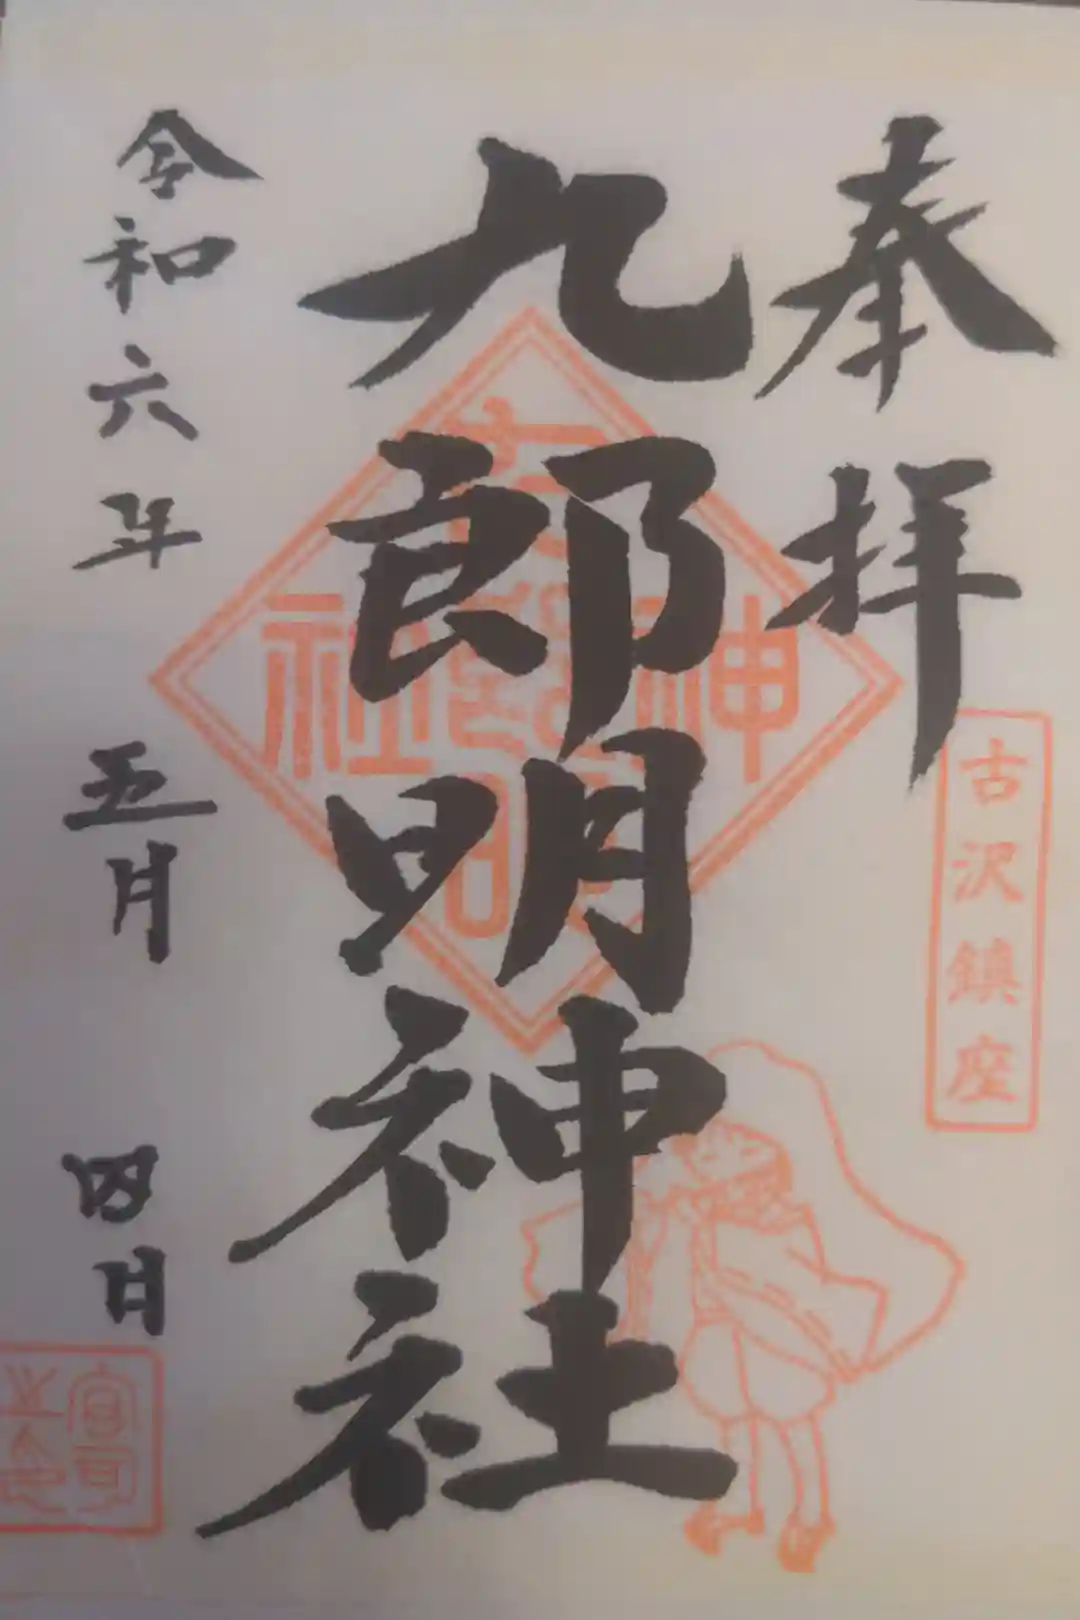 奉拝
古沢鎮座
九郎明神社
令和六年五月四日